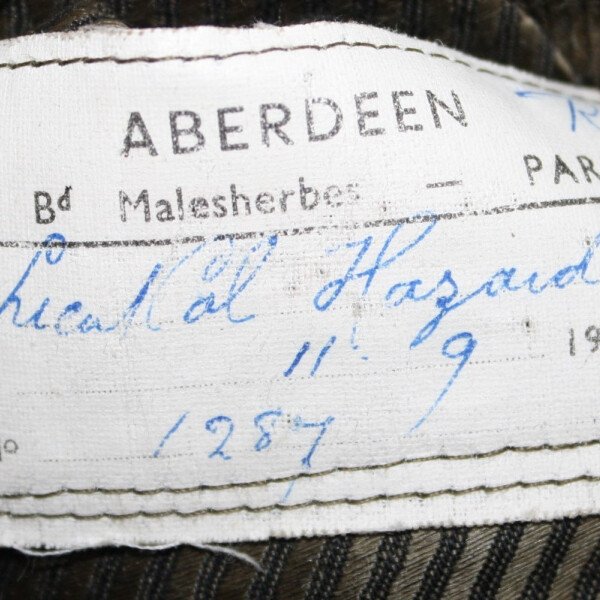 ABERDEEN
Bd Malesherbes — PAR
Hazard
11 9 19
No 1287